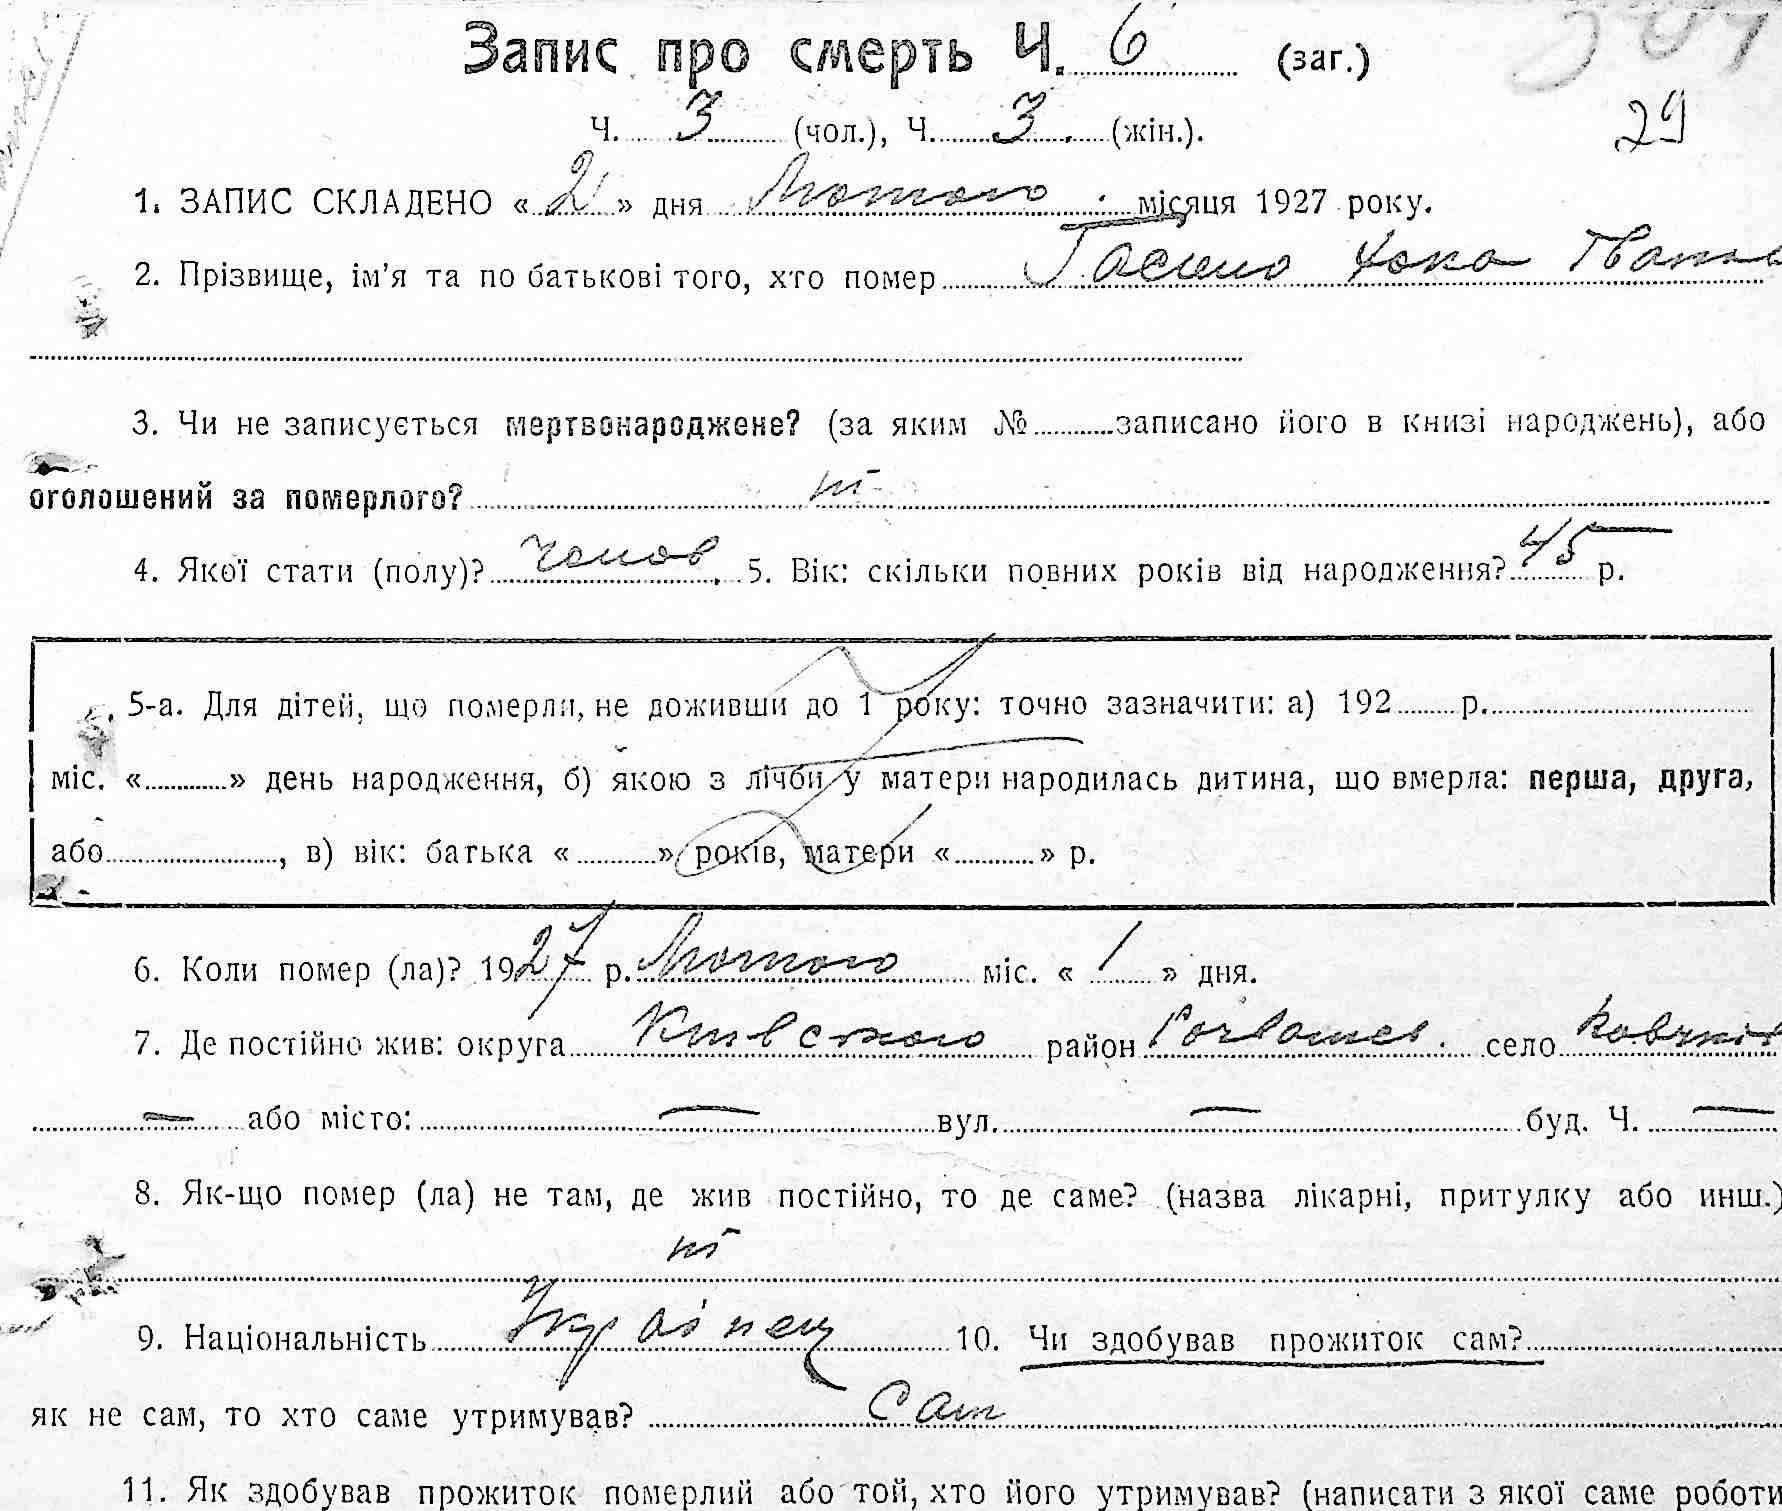 Запис про смерть Ч. 6 (заг.)
Ч. 3 (чол.), Ч. 3. (жін.).
29
1. ЗАПИС СКЛАДЕНО « 2 » дня Лютого місяця 1927 року.
2. Прізвище, ім'я та по батькові того, хто помер
3. Чи не записується мертвонароджене? (за яким № записано його в книзі народжень), або
оголошений за померлого? ні
4. Якої стати (полу)? чолов. 5. Вік: скільки повних років від народження? 45 р.
5-а. Для дітей, що померли, не доживши до 1 року: точно зазначити: а) 192 р.
міс. « » день народження, б) якою з лічби у матери народилась дитина, що вмерла: перша, друга,
або , в) вік: батька « » років, матери « » р.
6. Коли помер (ла)? 1927 р. Лютого міс. « 1 » дня.
7. Де постійно жив: округа Київського район село
— або місто: — вул. — буд. Ч. —
8. Як-що помер (ла) не там, де жив постійно, то де саме? (назва лікарні, притулку або инш.)
ні
9. Національність Українец 10. Чи здобував прожиток сам?
як не сам, то хто саме утримував? Сам
11. Як здобував прожиток померлий або той, хто його утримував? (написати з якої саме роботи